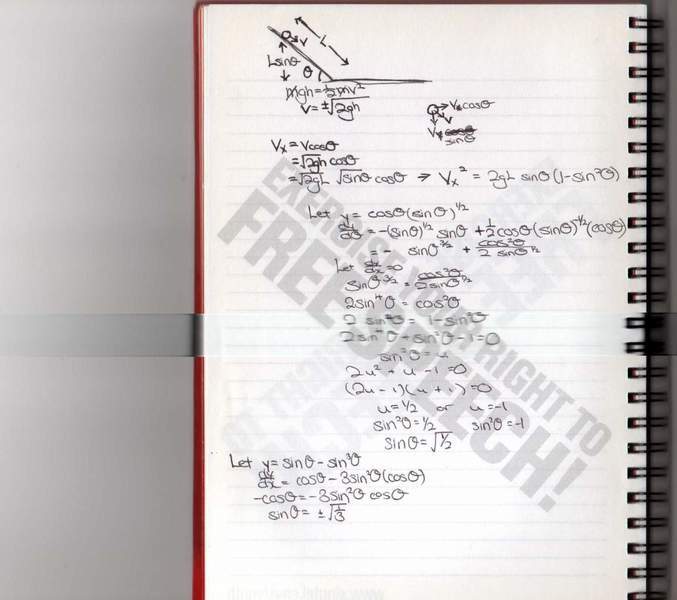 L
V
Lsinθ
θ
mgh = ½mv²
V = ±√2gh
Vx cosθ
V
Vy cosθ
sinθ
Vx = Vcosθ
= √2gh cosθ
= √2gL √sinθ cosθ ⇒ Vx² = 2gL sinθ(1-sin²θ)
Let y = cosθ(sinθ)^1/2
dy/dθ = -(sinθ)^1/2 sinθ + ½cosθ(sinθ)^-1/2(cosθ)
= - sinθ^3/2 + cos²θ/2 sinθ^1/2
Let dy/dx = 0
sinθ^3/2 = cos²θ/2sinθ^1/2
2sin⁴θ = cos²θ
2 sin⁴θ = 1-sin²θ
2sin⁴θ + sin²θ -1=0
sin²θ = u
2u² + u -1=0
(2u-1)(u+1)=0
u=1/2 or u=-1
sin²θ=1/2 sin²θ=-1
sinθ=√1/2
Let y = sinθ - sin³θ
dy/dx = cosθ - 3sin²θ(cosθ)
-cosθ = -3sin²θ cosθ
sinθ = ±√1/3
EXERCISE YOUR RIGHT TO
FREE SPEECH!